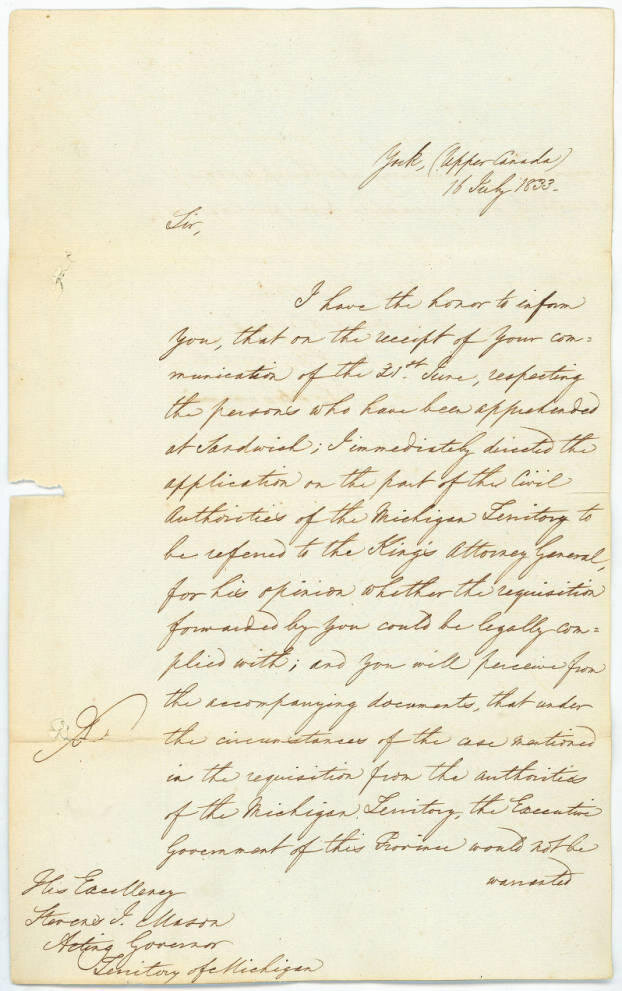 York, (Upper Canada)
16 July 1833.
Sir,
I have the honor to inform
you, that on the receipt of your com=
munication of the 21st. June, respecting
the persons who have been apprehended
at Sandwich; I immediately directed the
application on the part of the Civil
Authorities of the Michigan Territory to
be referred to the King's Attorney General,
for his opinion whether the requisition
forwarded by you could be legally com=
plied with; and you will perceive from
the accompanying documents, that under
the circumstances of the case mentioned
in the requisition from the authorities
of the Michigan Territory, the Executive
Government of this Province would not be
warranted
His Excellency
Stevens T. Mason
Acting Governor
Territory of Michigan